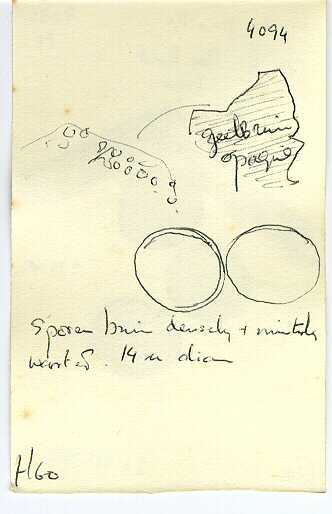 4094
geelbruin
opaque
Sporen bruin densely + minutely
warted. 14 u diam
H60